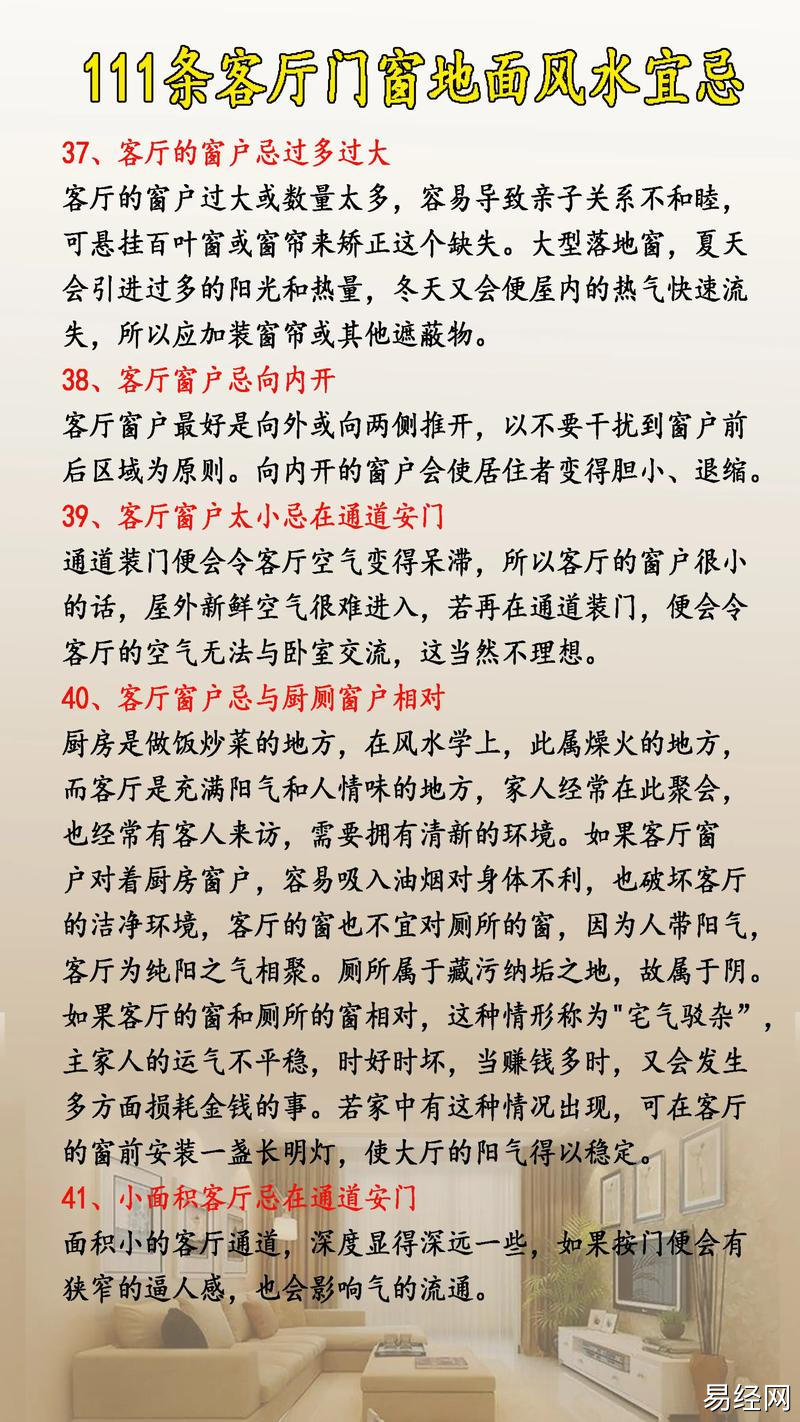 111条客厅门窗地面风水宜忌
37、客厅的窗户忌过多过大
客厅的窗户过大或数量太多，容易导致亲子关系不和睦，
可悬挂百叶窗或窗帘来矫正这个缺失。大型落地窗，夏天
会引进过多的阳光和热量，冬天又会便屋内的热气快速流
失，所以应加装窗帘或其他遮蔽物。
38、客厅窗户忌向内开
客厅窗户最好是向外或向两侧推开，以不要干扰到窗户前
后区域为原则。向内开的窗户会使居住者变得胆小、退缩。
39、客厅窗户太小忌在通道安门
通道装门便会令客厅空气变得呆滞，所以客厅的窗户很小
的话，屋外新鲜空气很难进入，若再在通道装门，便会令
客厅的空气无法与卧室交流，这当然不理想。
40、客厅窗户忌与厨厕窗户相对
厨房是做饭炒菜的地方，在风水学上，此属燥火的地方，
而客厅是充满阳气和人情味的地方，家人经常在此聚会，
也经常有客人来访，需要拥有清新的环境。如果客厅窗
户对着厨房窗户，容易吸入油烟对身体不利，也破坏客厅
的洁净环境，客厅的窗也不宜对厕所的窗，因为人带阳气，
客厅为纯阳之气相聚。厕所属于藏污纳垢之地，故属于阴。
如果客厅的窗和厕所的窗相对，这种情形称为"宅气驳杂”，
主家人的运气不平稳，时好时坏，当赚钱多时，又会发生
多方面损耗金钱的事。若家中有这种情况出现，可在客厅
的窗前安装一盏长明灯，使大厅的阳气得以稳定。
41、小面积客厅忌在通道安门
面积小的客厅通道，深度显得深远一些，如果按门便会有
狭窄的逼人感，也会影响气的流通。
易经网